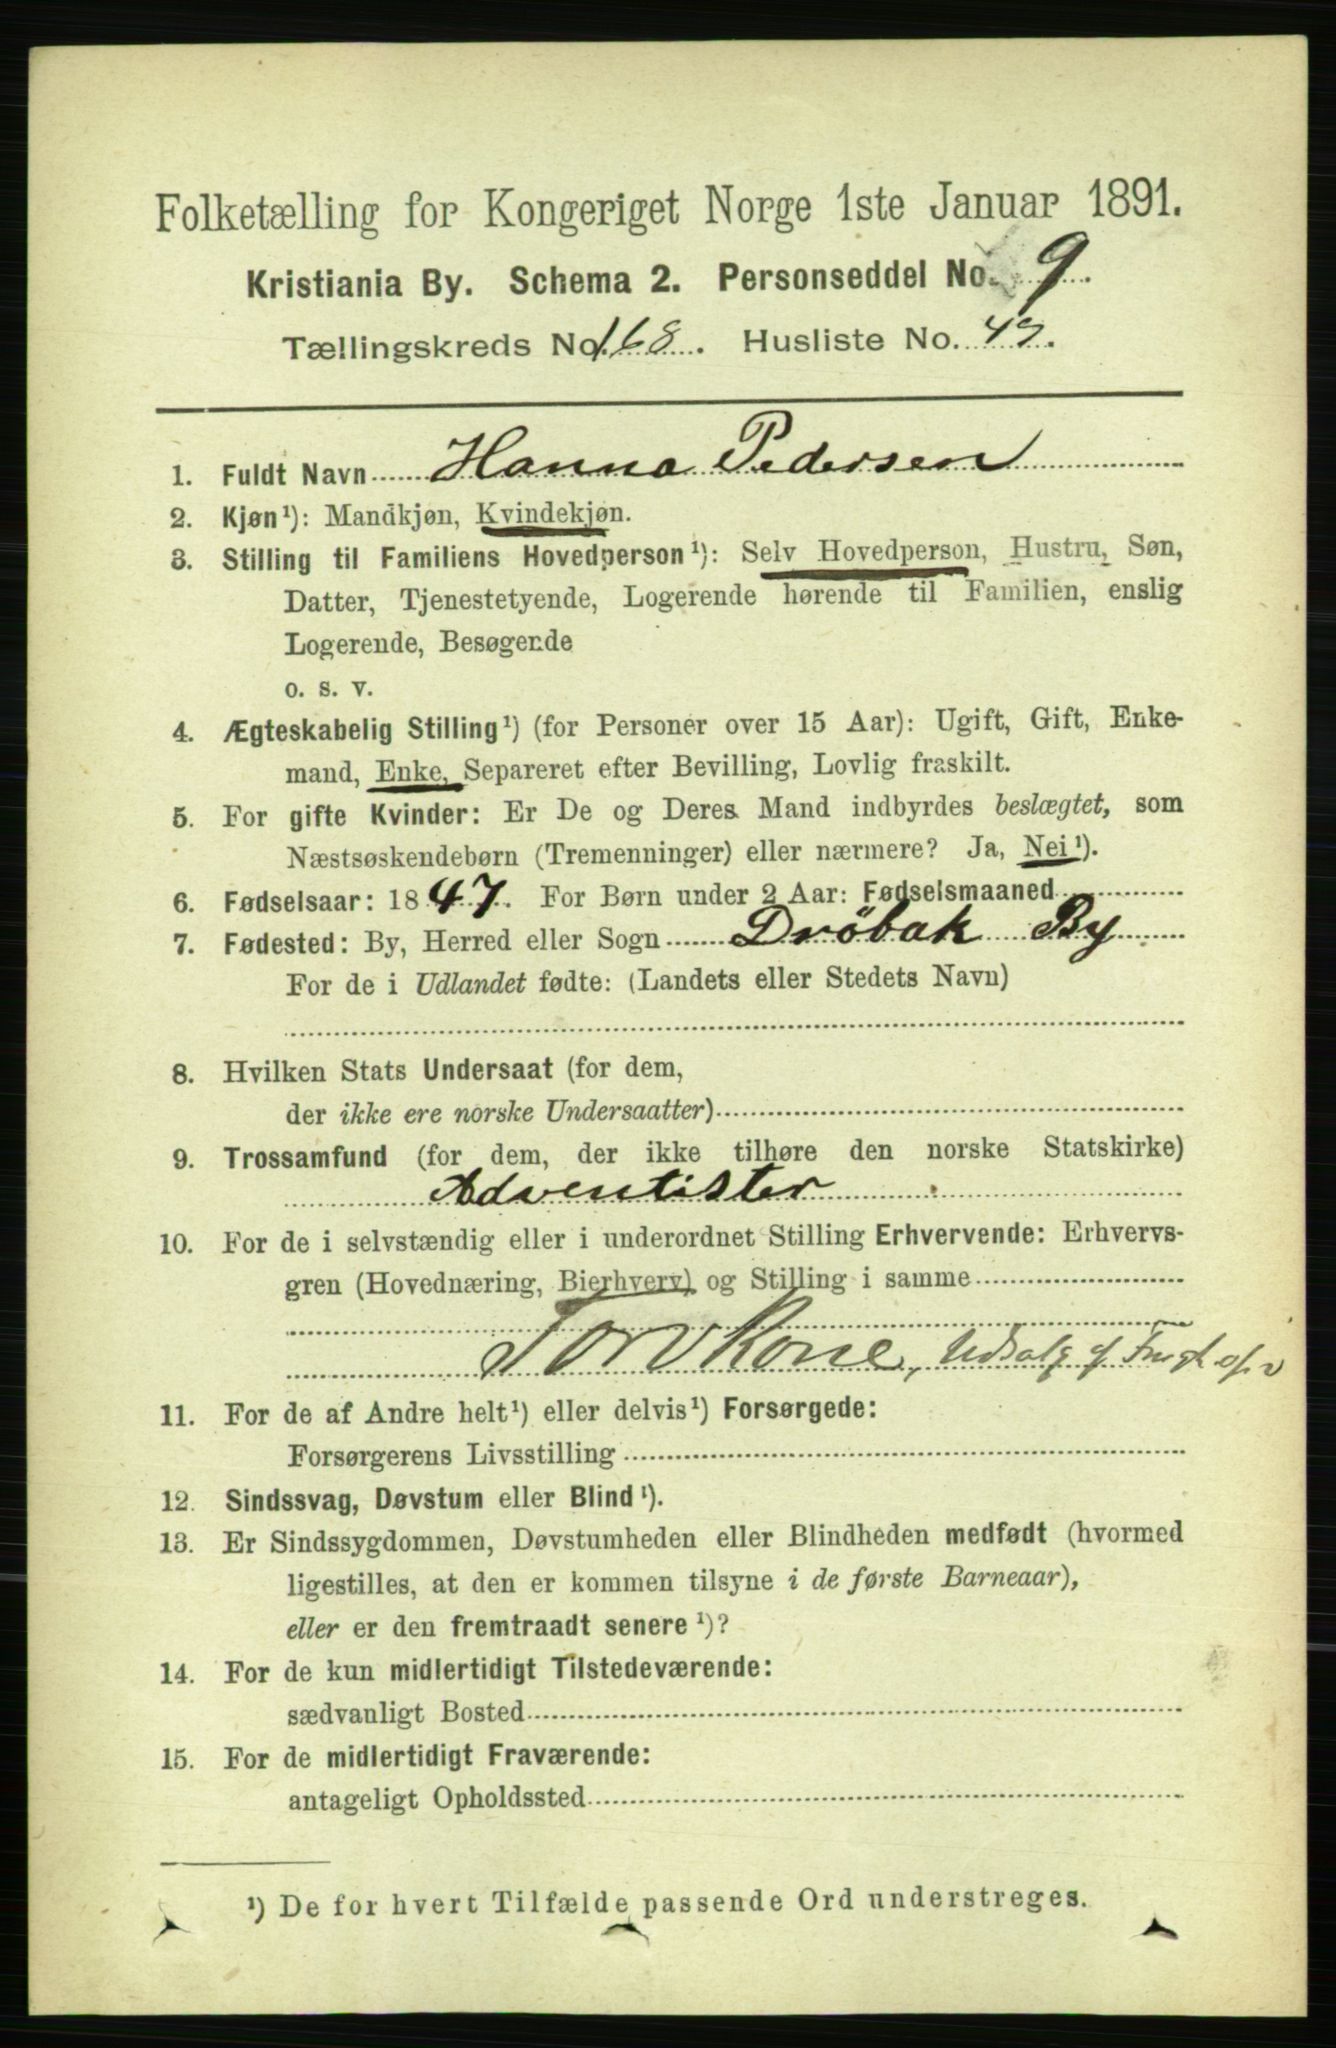 Folketælling for Kongeriget Norge 1ste Januar 1891.
Kristiania By. Schema 2. Personseddel No. 9.
Tællingskreds No. 168. Husliste No. 49.
1. Fuldt Navn Hanna Pedersen
2. Kjøn¹): Mandkjøn, Kvindekjøn.
3. Stilling til Familiens Hovedperson¹): Selv Hovedperson, Hustru, Søn,
Datter, Tjenestetyende, Logerende hørende til Familien, enslig
Logerende, Besøgende
o. s. v.
4. Ægteskabelig Stilling¹) (for Personer over 15 Aar): Ugift, Gift, Enke-
mand, Enke, Separeret efter Bevilling, Lovlig fraskilt.
5. For gifte Kvinder: Er De og Deres Mand indbyrdes beslægtet, som
Næstsøskendebørn (Tremenninger) eller nærmere? Ja, Nei¹).
6. Fødselsaar: 1847. For Børn under 2 Aar: Fødselsmaaned
7. Fødested: By, Herred eller Sogn Dröbak By
For de i Udlandet fødte: (Landets eller Stedets Navn)
8. Hvilken Stats Undersaat (for dem,
der ikke ere norske Undersaatter)
9. Trossamfund (for dem, der ikke tilhøre den norske Statskirke)
Adventister
10. For de i selvstændig eller i underordnet Stilling Erhvervende: Erhvervs-
gren (Hovednæring, Bierhverv) og Stilling i samme
Torvkone, Udsalg af Frugt
11. For de af Andre helt¹) eller delvis¹) Forsørgede:
Forsørgerens Livsstilling
12. Sindssvag, Døvstum eller Blind¹).
13. Er Sindssygdommen, Døvstumheden eller Blindheden medfødt (hvormed
ligestilles, at den er kommen tilsyne i de første Barneaar),
eller er den fremtraadt senere¹)?
14. For de kun midlertidigt Tilstedeværende:
sædvanligt Bosted
15. For de midlertidigt Fraværende:
antageligt Opholdssted
¹) De for hvert Tilfælde passende Ord understreges.